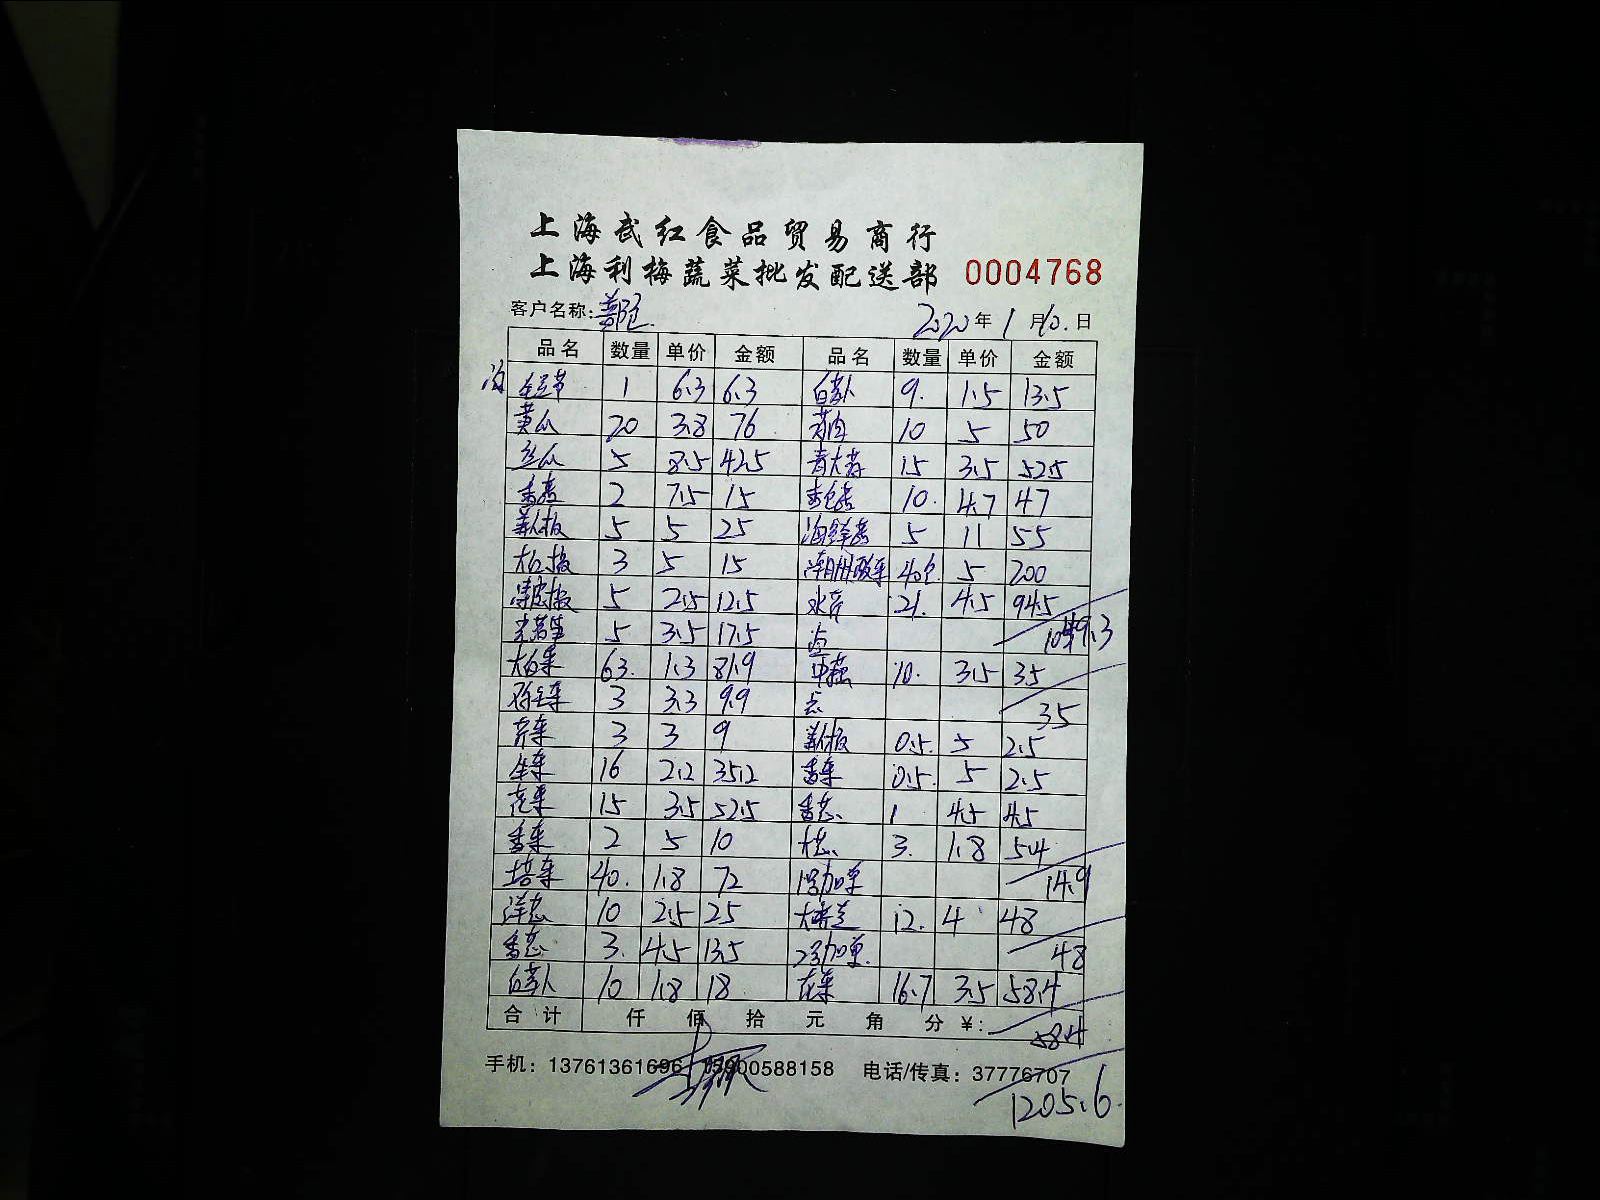 上海武红食品贸易商行
上海利梅蔬菜批发配送部 0004768
客户名称: 2020年1月10.日
品名 数量 单价 金额 品名 数量 单价 金额
1 6.3 6.3 白萝卜 9. 1.5 13.5
黄瓜 20 3.8 76 10 5 50
丝瓜 5 8.5 42.5 青大蒜 15 3.5 52.5
香麦 2 7.5 15 10. 4.7 47
美人椒 5 5 25 海鲜菇 5 11 55
大红椒 3 5 15 潮州酸菜 40包 5 200
薄皮椒 5 2.5 12.5 水芹 21. 4.5 94.5
5 3.5 17.5 1049.3
大白菜 63. 1.3 81.9 10. 3.5 35
3 3.3 9.9 点 35
芹菜 3 3 9 美人椒 0.5. 5 2.5
生菜 16 2.2 35.2 香菜 0.5. 5 2.5
花菜 15 3.5 52.5 香葱 1 4.5 4.5
香菜 2 5 10 大葱 3. 1.8 5.4
塔菜 40. 1.8 72 1号加单 14.9
洋葱 10 2.5 25 12. 4 48
香葱 3. 4.5 13.5 2号加单. 48
白萝卜 10 1.8 18 花菜 16.7 3.5 58.4
合计 仟 佰 拾 元 角 分 ¥: 58.4
手机: 13761361696 15900588158 电话/传真: 37776707
1205.6